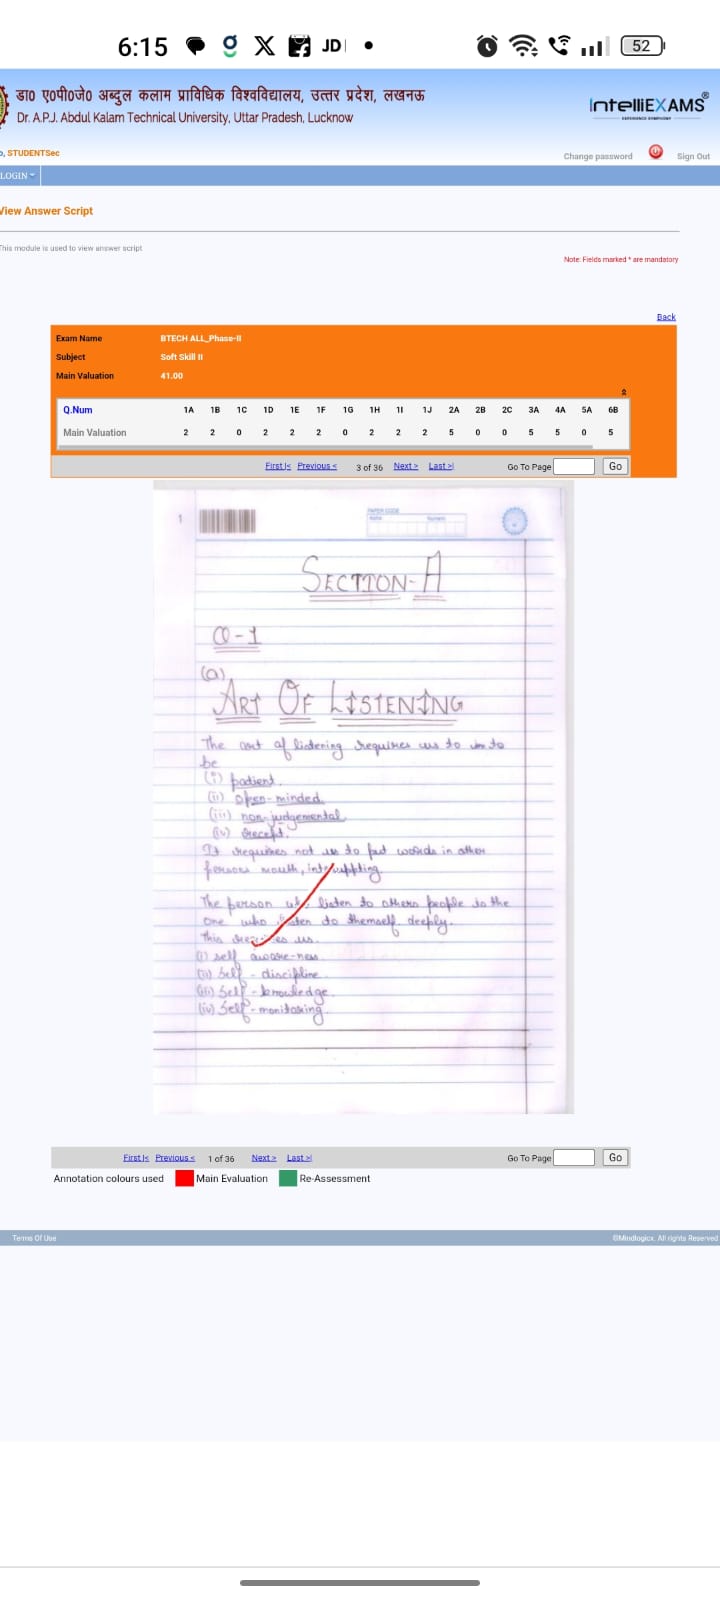 6:15 JD 52
डा0 ए0पी0जे0 अब्दुल कलाम प्राविधिक विश्वविद्यालय, उत्तर प्रदेश, लखनऊ
Dr. A.P.J. Abdul Kalam Technical University, Uttar Pradesh, Lucknow
IntelliEXAMS®
o, STUDENTSec
Change password Sign Out
LOGIN
View Answer Script
This module is used to view answer script
Note: Fields marked * are mandatory
Back
Exam Name BTECH ALL_Phase-II
Subject Soft Skill II
Main Valuation 41.00
Q.Num 1A 1B 1C 1D 1E 1F 1G 1H 1I 1J 2A 2B 2C 3A 4A 5A 6B
Main Valuation 2 2 0 2 2 2 0 2 2 2 5 0 0 5 5 0 5
First |< Previous < 3 of 36 Next > Last >| Go To Page Go
1
PAPER CODE
SECTION-A
Q-1
(a)
ART OF LISTENING
The art of listening requires us to
be
(i) patient.
(ii) open-minded.
(iii) non-judgemental.
(iv)
It requires not us to put words in other
persons mouth, interuppting.
The person who listen to others people is the
one who listen to themself deeply.
This requires us.
(i) self aware-ness
(ii) Self - discipline.
(iii) Self - knowledge.
(iv) Self - monitoring.
First |< Previous < 1 of 36 Next > Last >| Go To Page Go
Annotation colours used Main Evaluation Re-Assessment
Terms Of Use ©Mindlogicx. All rights Reserved